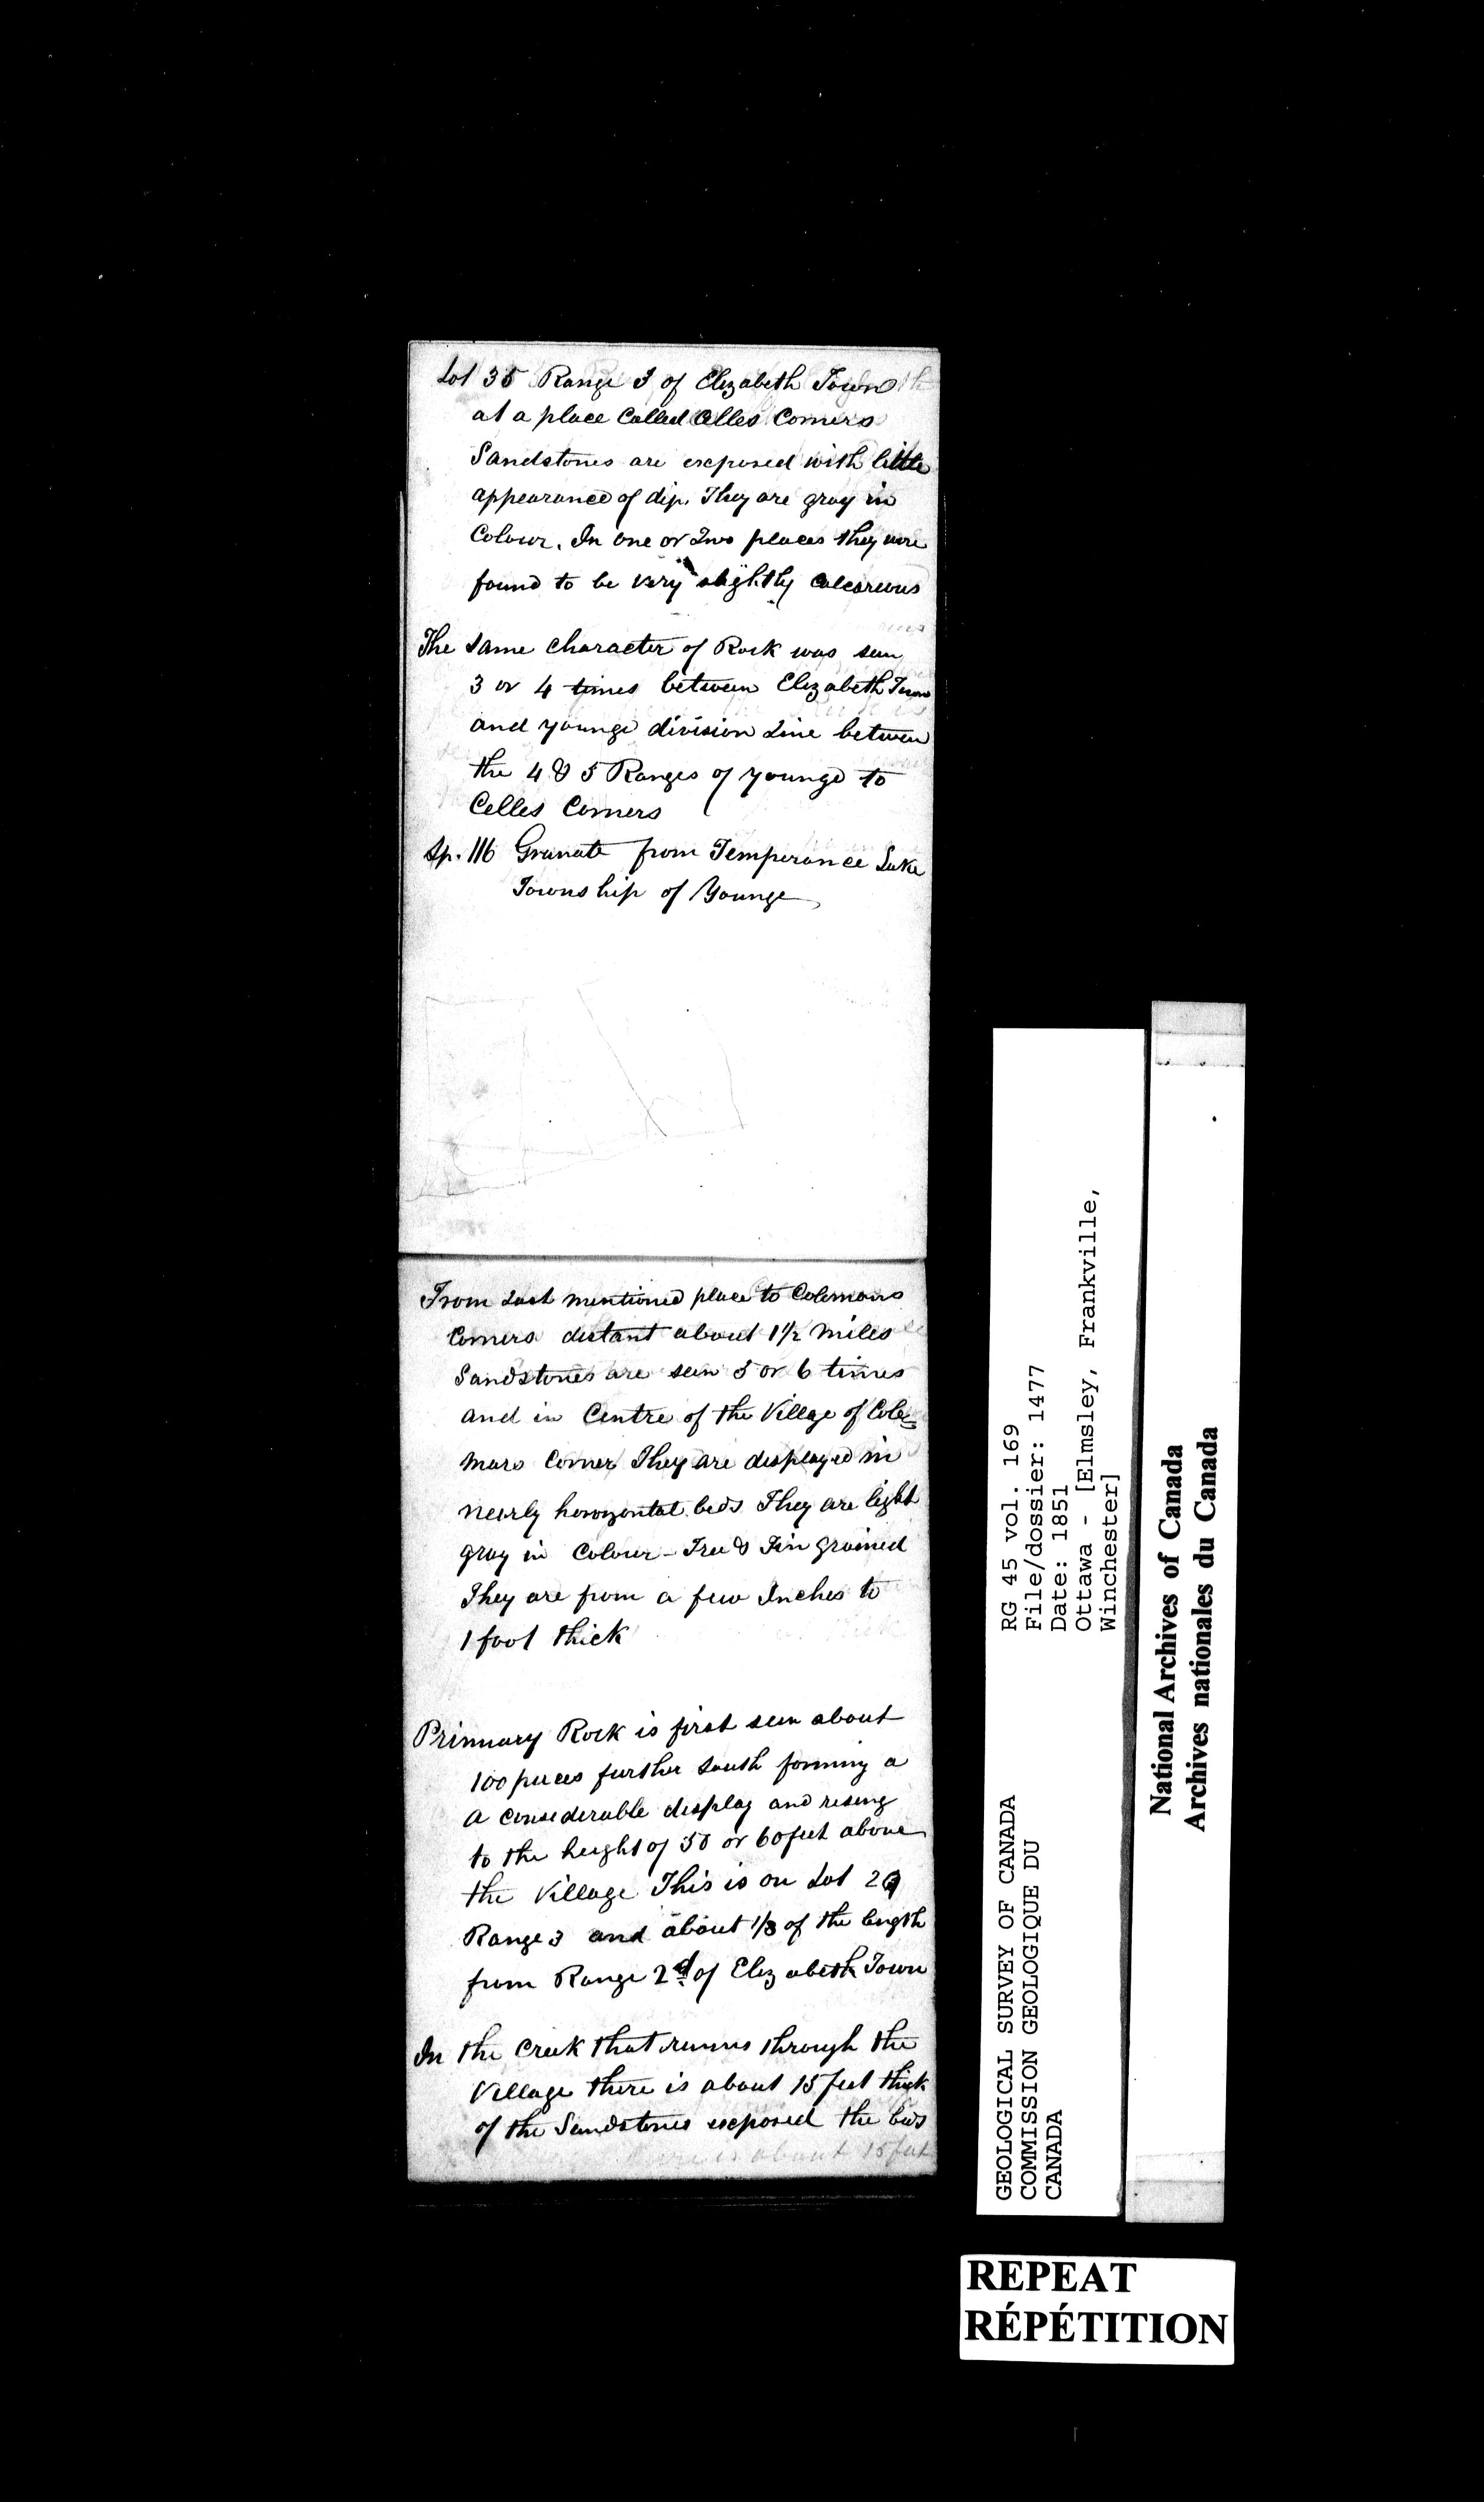 Lot 35 Range 3 of Elizabeth Town
at a place Called Celles Corners
Sandstones are exposed with little
appearance of dip. They are gray in
Colour. In one or Two places they were
found to be very slightly Calcareous
The same character of Rock was seen
3 or 4 times between Elizabeth Town
and Younge division Line between
the 4 & 5 Ranges of Younge to
Celles Corners
Sp. 116 Granate from Temperance Lake
Township of Younge
From Last mentioned place to Colemans
Corners distant about 1½ Miles
Sandstones are seen 5 or 6 times
and in Centre of the Village of Cole=
mans Corner They are displayed in
nearly horozontal beds They are light
gray in Colour - Free & Fin grained
They are from a few Inches to
1 foot thick
Primmary Rock is first seen about
100 paces further South forming a
a considerable display and rising
to the height of 50 or 60 feet above
the Village This is on Lot 29
Range 3 and about 1/3 of the length
from Range 2d of Elizabeth Town
In the Creek that runns through the
Village there is about 15 feet thick
of the Sandstones exposed the beds
GEOLOGICAL SURVEY OF CANADA
COMMISSION GEOLOGIQUE DU
CANADA
RG 45 vol. 169
File/dossier: 1477
Date: 1851
Ottawa - [Elmsley, Frankville,
Winchester]
National Archives of Canada
Archives nationales du Canada
REPEAT
RÉPÉTITION